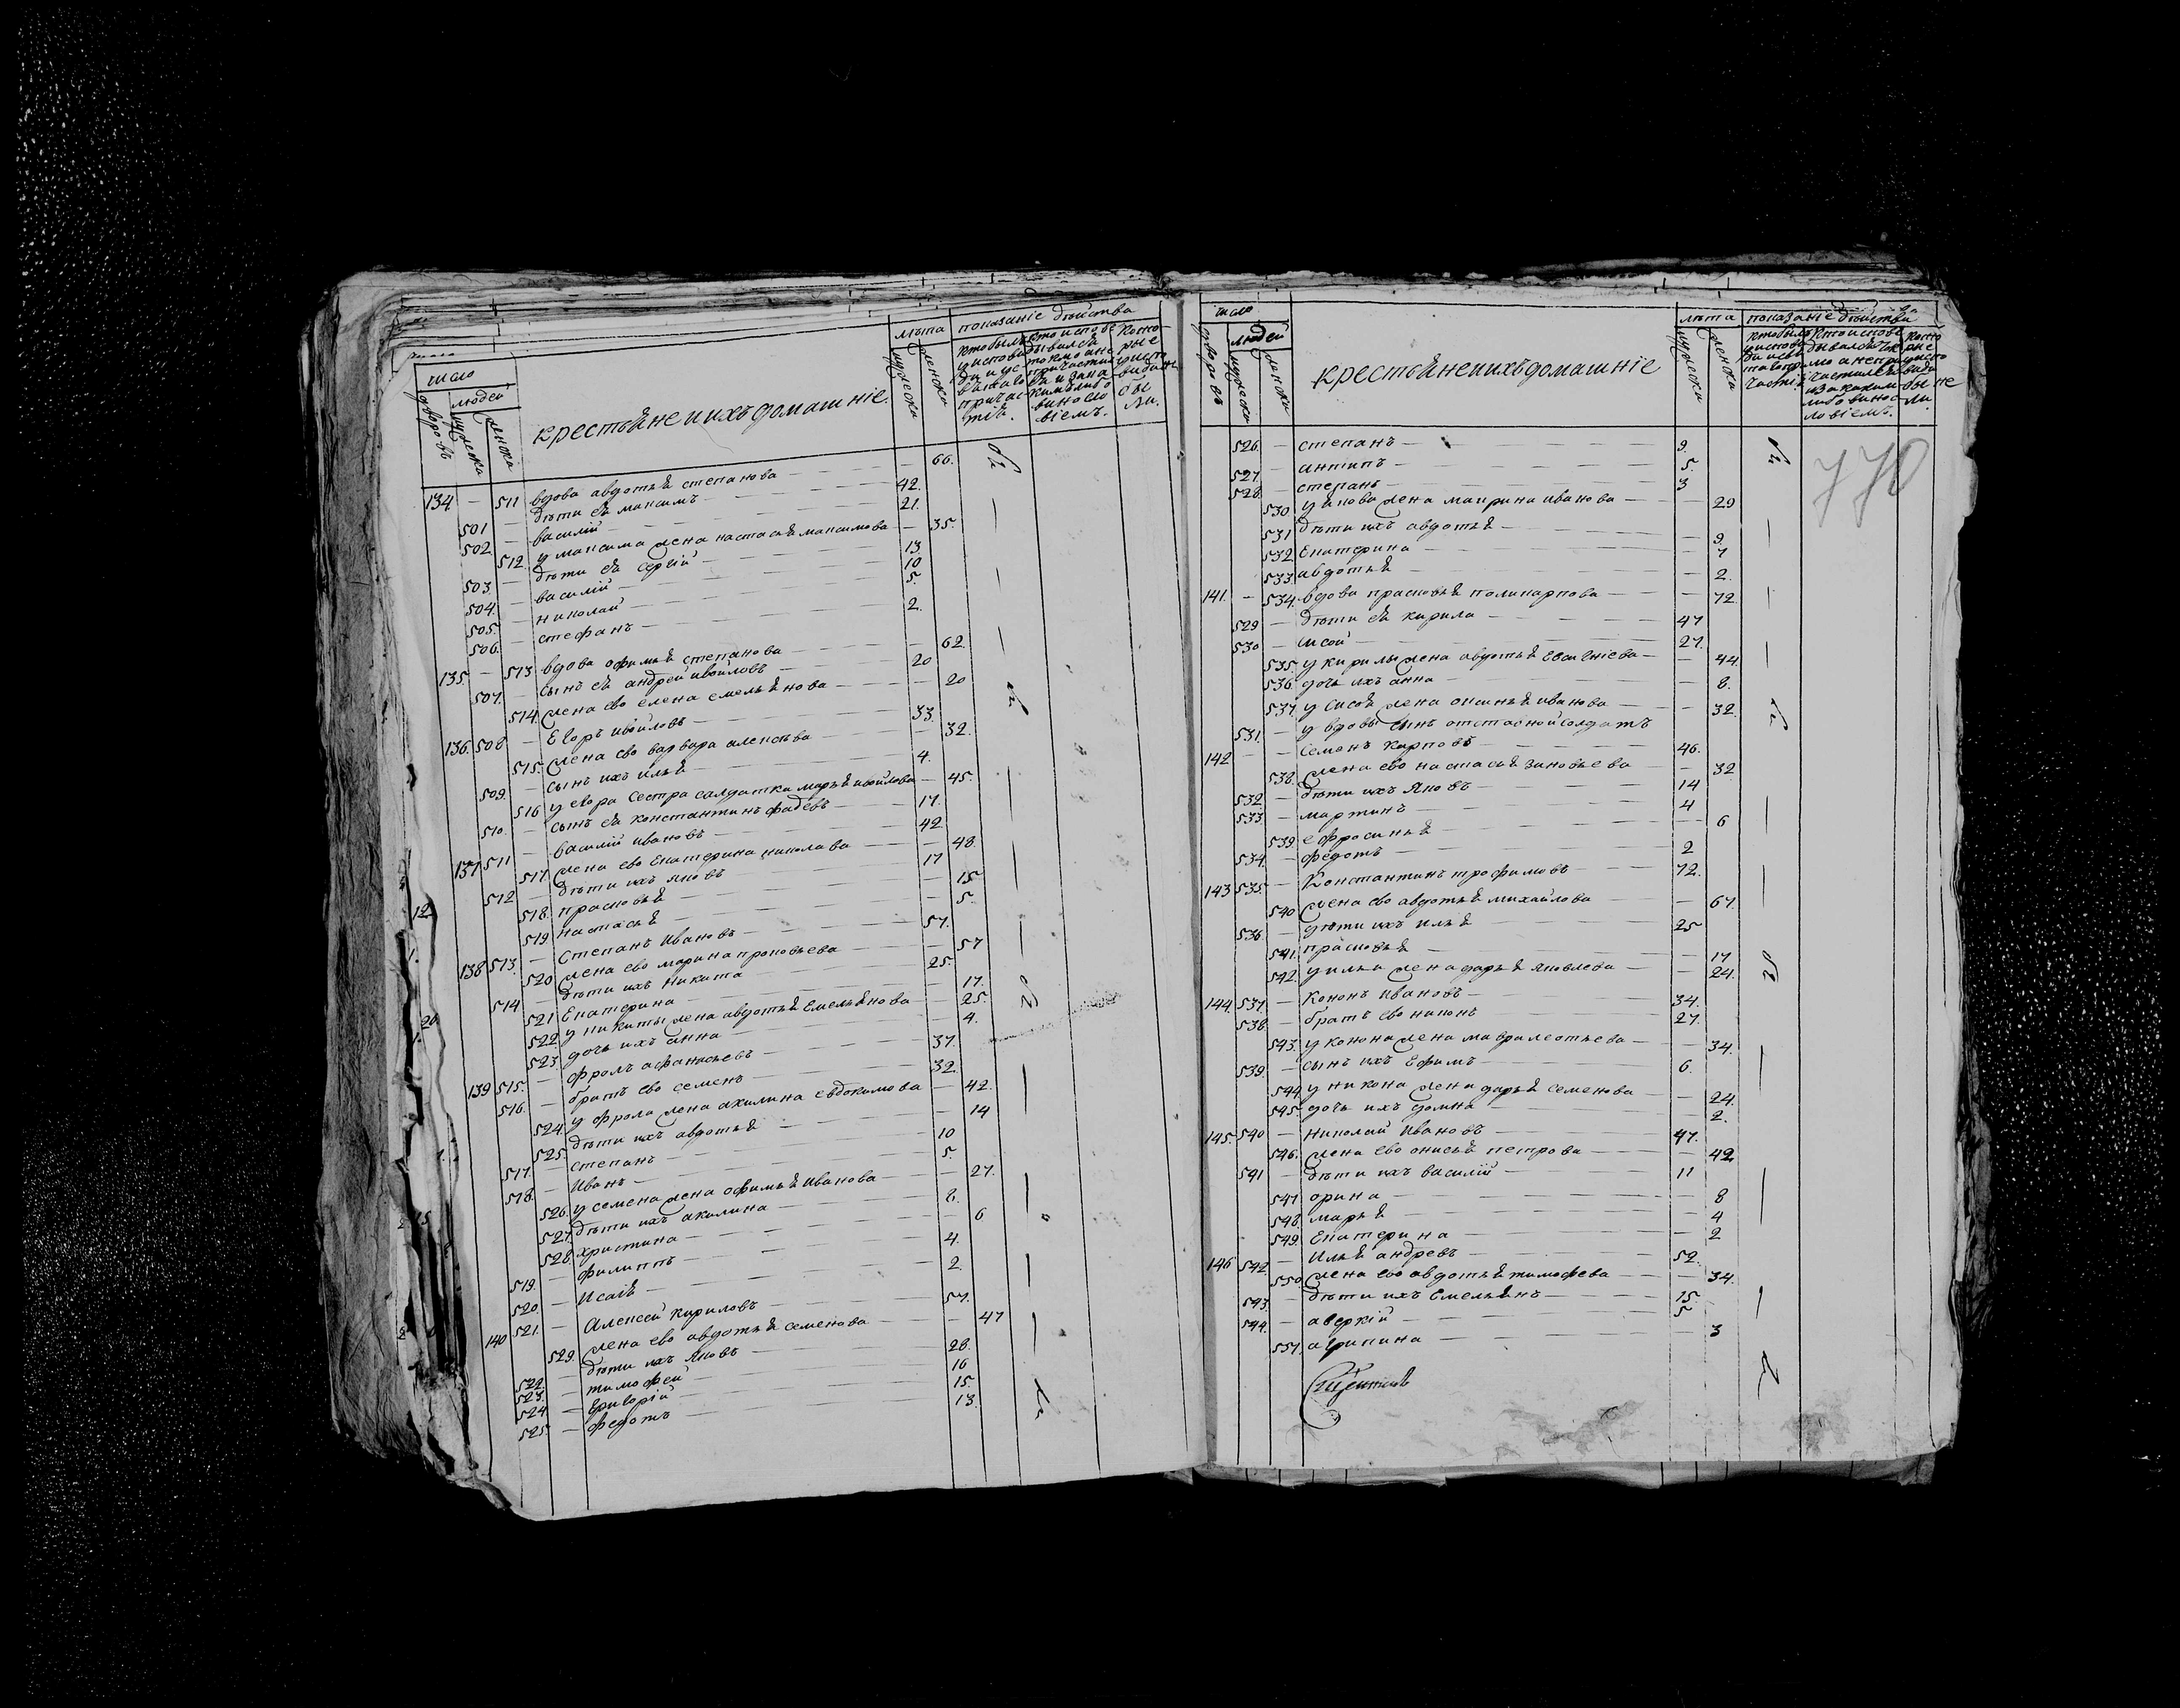 число
дворовъ
людей
мужеска
женска
крестьяне и ихъ домашніе
лѣта
мужеска
женска
показаніе дѣйства
134 — 511 вдова авдотья степанова — 66.
501 — дѣти ея максимъ — 42.
502. — василій — 21.
512. у максима жена настасья максимова — 35.
503. — дѣти ея сергій — 13
504. — василій — 10
505. — николай — 5.
506. — стефанъ — 2.
135. — 513 вдова офимья степанова — 62.
507. — сынъ ея андрей ивойловъ — 20
514. жена ево елена емельянова — 20
136. 508 — Егоръ ивойловъ — 33.
515. жена ево варвара алексѣва — 32.
509. — сынъ ихъ илья — 4.
516 у егора сестра салдатка марья ивойлова — 45.
510. — сынъ ея константинъ фадѣвъ — 17.
137 511 — василій ивановъ — 42
517 жена ево Екатерина николава — 48.
512 — дѣти ихъ яковъ — 17
518. прасковья — 15
519 настасья — 5.
138 513. — Степанъ Ивановъ — 57.
520 жена ево марина прокофьева — 57
514 — дѣти ихъ никита — 25.
521 Екатерина — 17.
522 у никиты жена авдотья Емельянова — 25.
523. дочь ихъ анна — 4.
139 515. — фролъ афанасьевъ — 37.
516. — братъ ево семенъ — 32.
524. у фрола жена акилина евдокимова — 42.
525. дѣти ихъ авдотья — 14
517. — степанъ — 10
518. — Иванъ — 5.
526. у семена жена офимья Иванова — 27.
527. дѣти ихъ акилина — 8.
528. христина — 6
519. — филиппъ — 4.
520. — Исаія — 2.
140 521. — Алексей кириловъ — 57.
529. жена ево авдотья семенова — 47
522 — дѣти ихъ яковъ — 28.
523. — тимофей — 16
524 — григорій — 15.
525. — федотъ — 13.
число
дворовъ
людей
мужеска
женска
крестьяне и ихъ домашніе
лѣта
мужеска
женска
показаніе дѣйства
770
526. — степанъ — 9.
527. — антипъ — 5.
528. — степанъ — 3
530 у якова жена маврина иванова — 29
531 дѣти ихъ авдотья — 9.
532 Екатерина — 7
533. авдотья — 2.
141. — 534. вдова прасковья поликарпова — 72.
529 — дѣти ея кирила — 47
530 — сисой — 27.
535. у кирилы жена авдотья Евсигніева — 44.
536. дочь ихъ анна — 8.
537. у сисоя жена оксинья иванова — 32.
531. — у вдовы сынъ отставной солдатъ
142 — семенъ карповъ — 46.
538. жена ево настасья зиновьева — 32
532 — дѣти ихъ яковъ — 14
533 — мартинъ — 4
539 ефросинья — 6
534. — федотъ — 2
143 535. — Константинъ трофимовъ — 72.
540 жена ево авдотья михайлова — 67.
536. — дѣти ихъ илья — 25
541. прасковья — 17
542. у ильи жена дарья яковлева — 24.
144. 537. — кононъ ивановъ — 34.
538. — братъ ево никонъ — 27.
543. у конона жена мавра леотьева — 34.
539. — сынъ ихъ Ефимъ — 6.
544. у никона жена дарья семенова — 24.
545. дочь ихъ домна — 2.
145. 540 — николай Ивановъ — 47.
546. жена ево онисья петрова — 42
541 — дѣти ихъ василій — 11
547 орина — 8
548. марья — 4
549. Екатерина — 2
146 542. — Илья андревъ — 52.
550 жена ево авдотья тимофева — 34.
543. — дѣти ихъ Емельянъ — 15.
544. — аверкій — 5
551. агрипина — 3